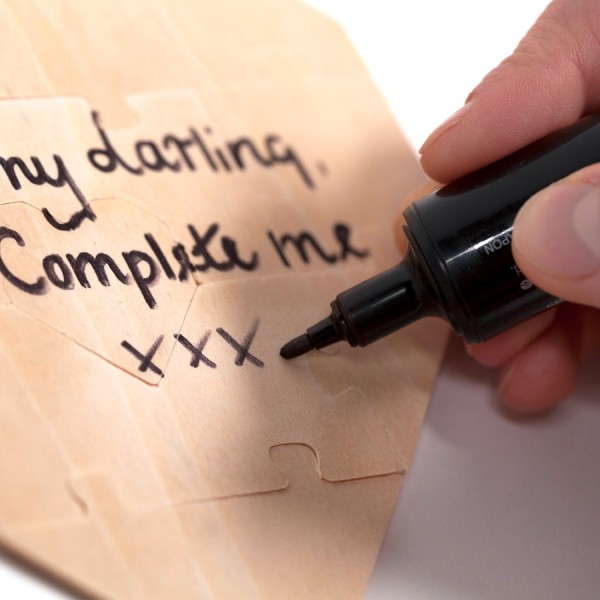 my darling,
Complete me
xxx